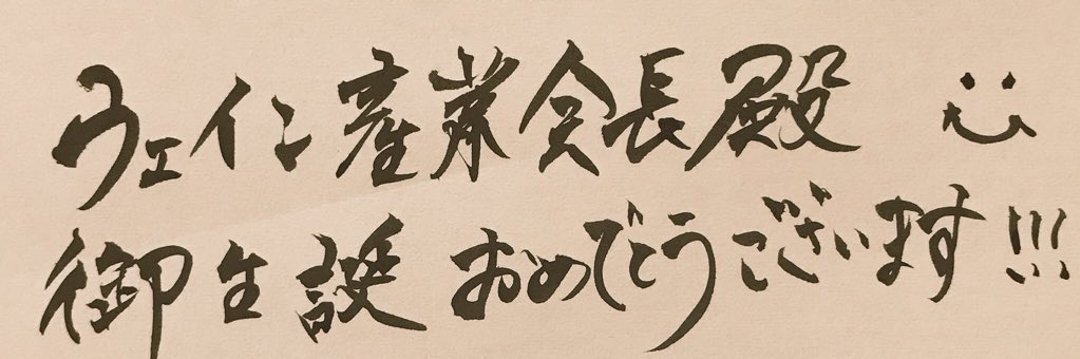 ウェイン産業会長殿
御生誕おめでとうございます!!!